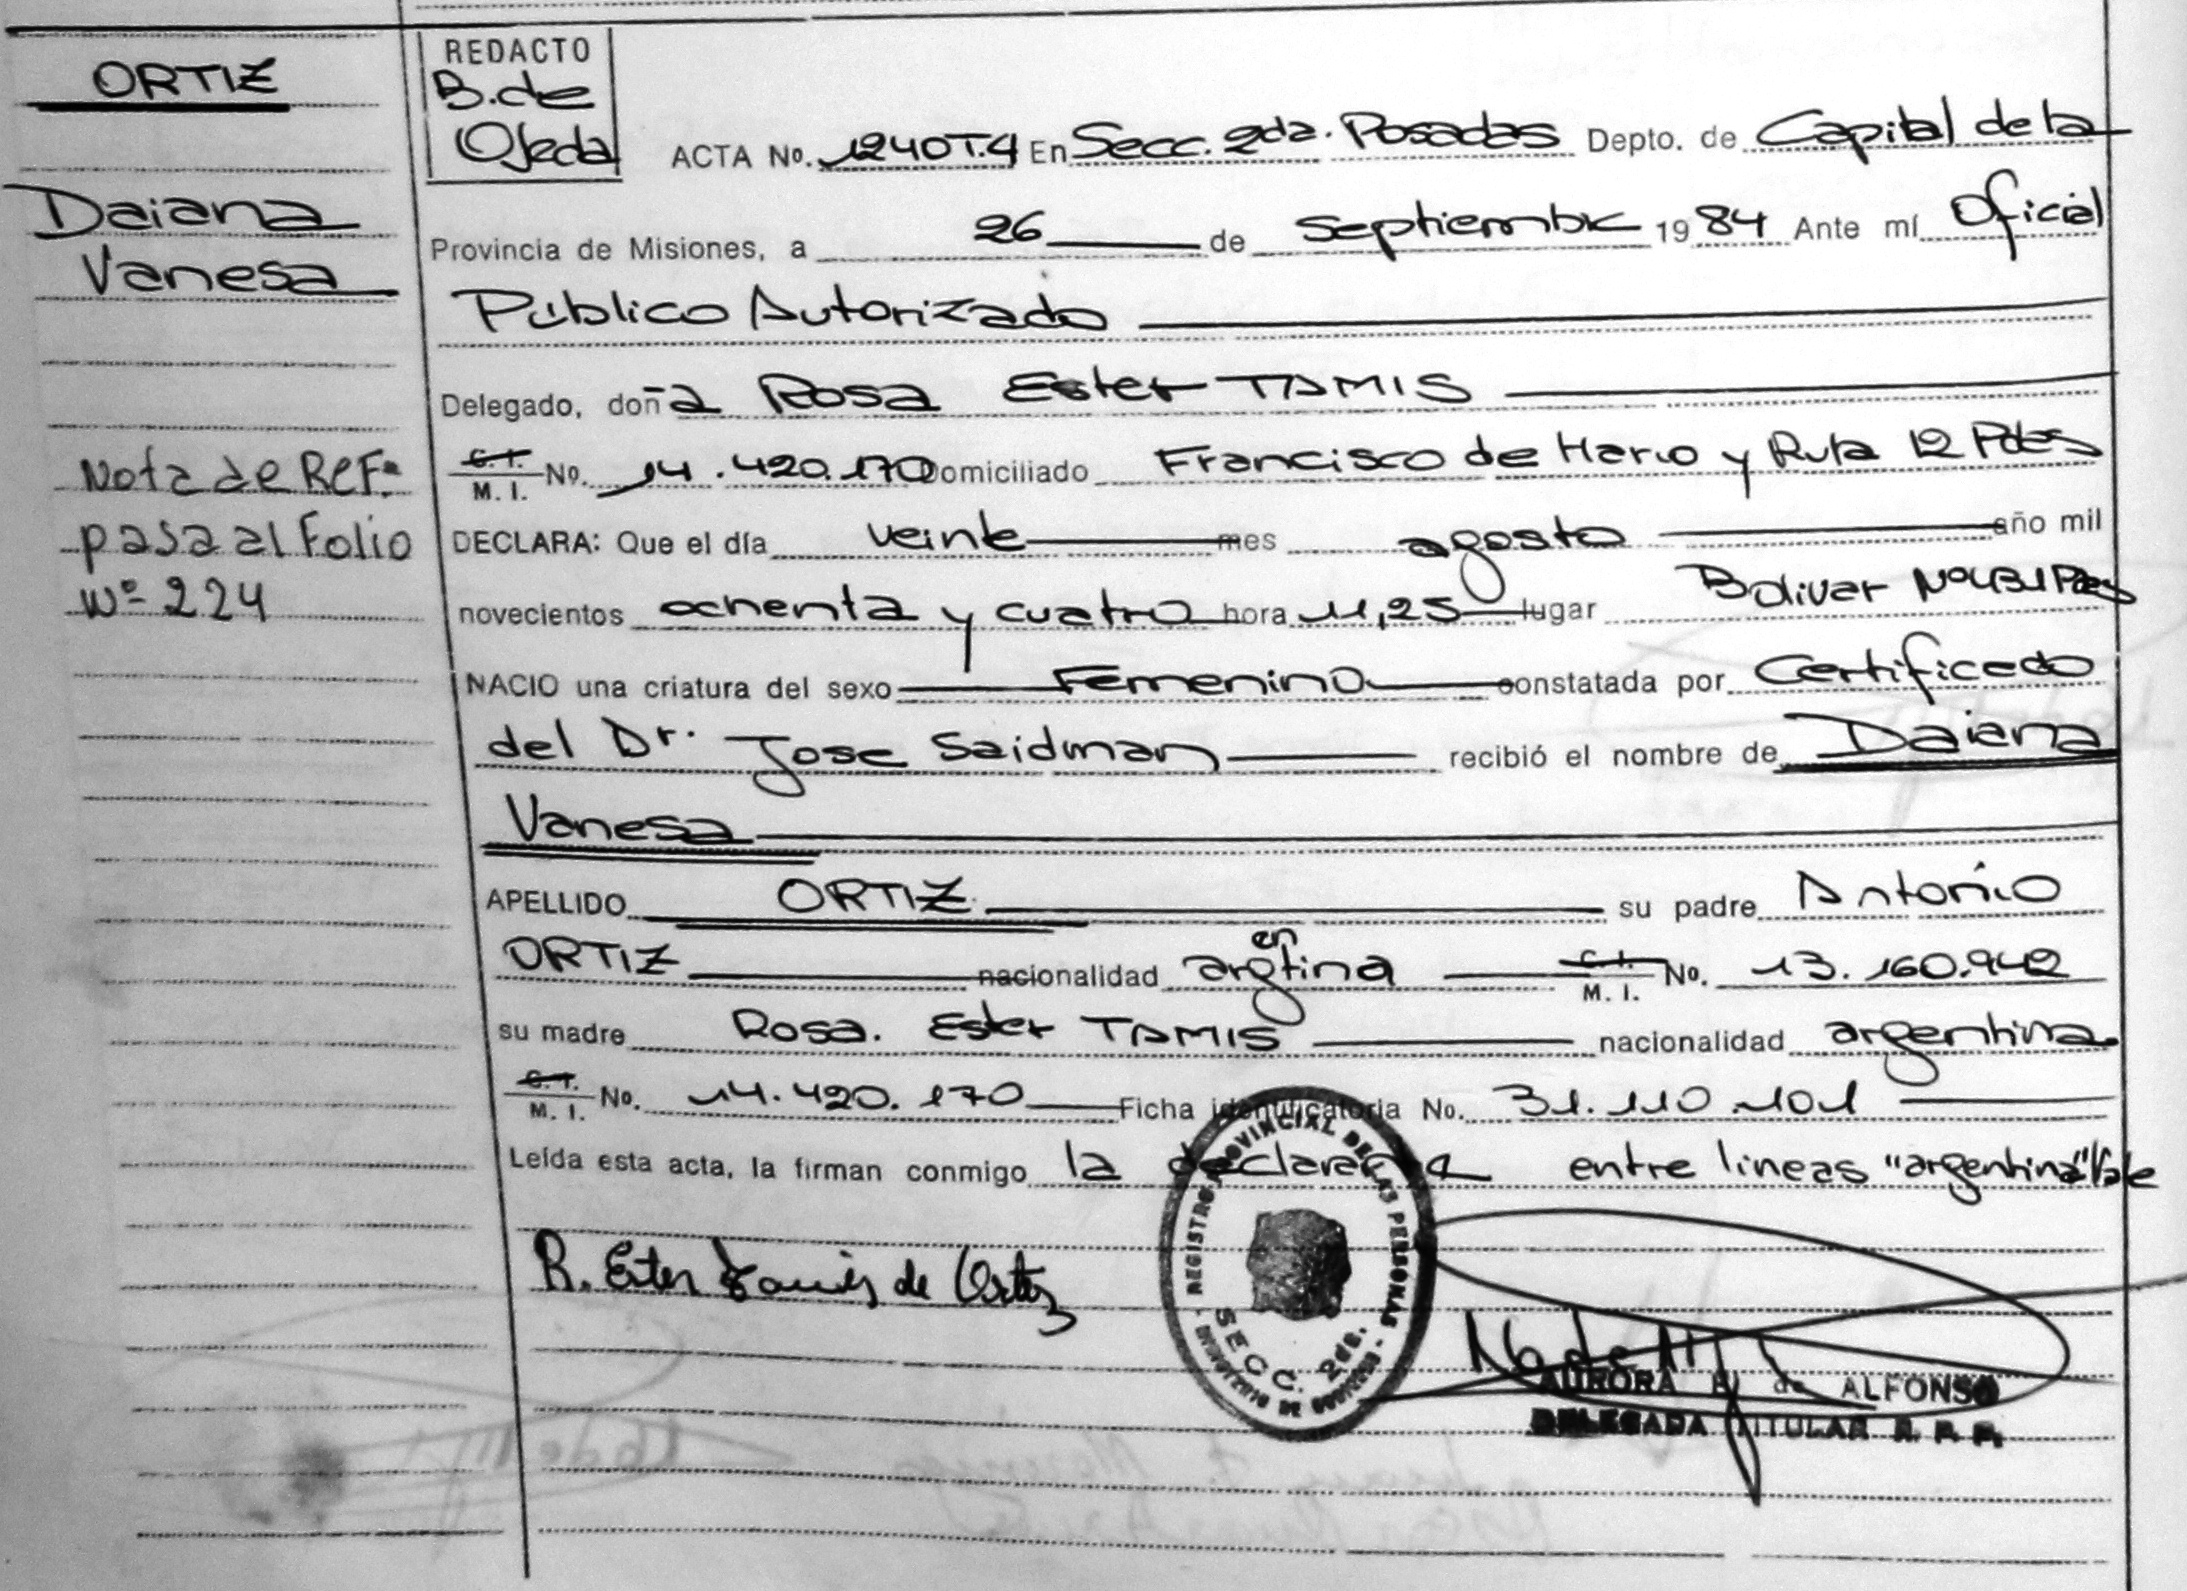 ORTIZ
Daiana
Vanesa
Nota de Ref.
pasa al Folio
Nº 224
REDACTO
B. de
Ojeda
ACTA No. 1240 T.4 En Secc. 2da. Posadas Depto. de Capital de la
Provincia de Misiones, a 26 de Septiembre 1984 Ante mí Oficial
Público Autorizado
Delegado, doña Rosa Ester TAMIS
C.I. / M. I. No. 14.420.170 Domiciliado Francisco de Haro y Ruta 12 Pdas
DECLARA: Que el día veinte mes agosto año mil
novecientos ochenta y cuatro hora 11,25 lugar Bolivar Nº 431 Pdas
NACIO una criatura del sexo Femenino constatada por Certificado
del Dr. Jose Saidman recibió el nombre de Daiana
Vanesa
APELLIDO ORTIZ su padre Antonio
ORTIZ nacionalidad argentina C.I. / M. I. No. 13.160.942
su madre Rosa. Ester TAMIS nacionalidad argentina
C.I. / M. I. No. 14.420.170 Ficha identificatoria No. 31.110.101
Leída esta acta, la firman conmigo la declarante entre lineas "argentina" Vale
R. Ester Tamis de Ortiz
REGISTRO PROVINCIAL DE LAS PERSONAS
SECC. 2da.
MINISTERIO DE GOBIERNO
AURORA de ALFONSO
DELEGADA TITULAR R. P. P.